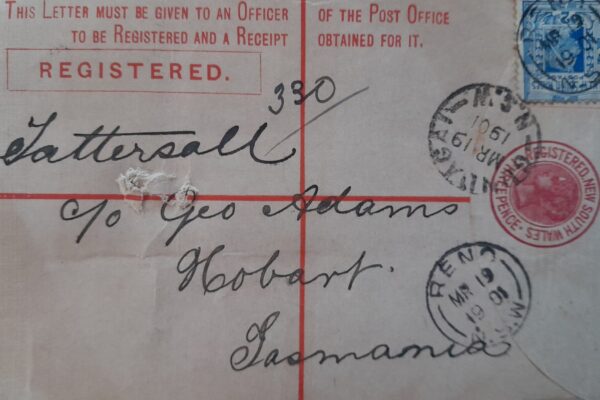 THIS LETTER MUST BE GIVEN TO AN OFFICER OF THE POST OFFICE
TO BE REGISTERED AND A RECEIPT OBTAINED FOR IT.
REGISTERED.
330
Tattersall
c/o Geo Adams
Hobart.
Tasmania
N.S.W
MR 19
1901
REGISTERED, NEW SOUTH WALES
THREE PENCE
RENO
MR 19
19 01